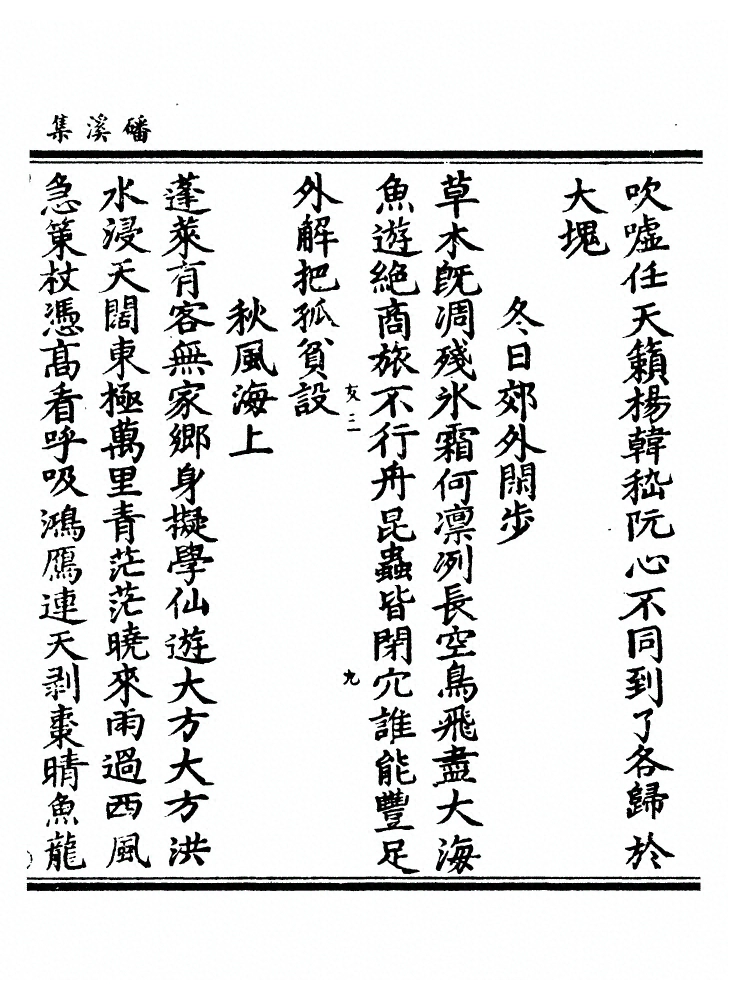 磻溪集
吹噓任天籟楊韓嵇阮心不同到了各歸於
大塊
冬日郊外閑步
草木旣凋殘氷霜何凛冽長空鳥飛盡大海
魚遊絕商旅不行舟昆蟲皆閉穴誰能豐足
外解把孤貧設
友三
九
秋風海上
蓬萊有客無家鄉身擬學仙遊大方大方洪
水浸天闊東極萬里青茫茫曉來雨過西風
急策杖憑高看呼吸鴻鴈連天剥棗晴魚龍